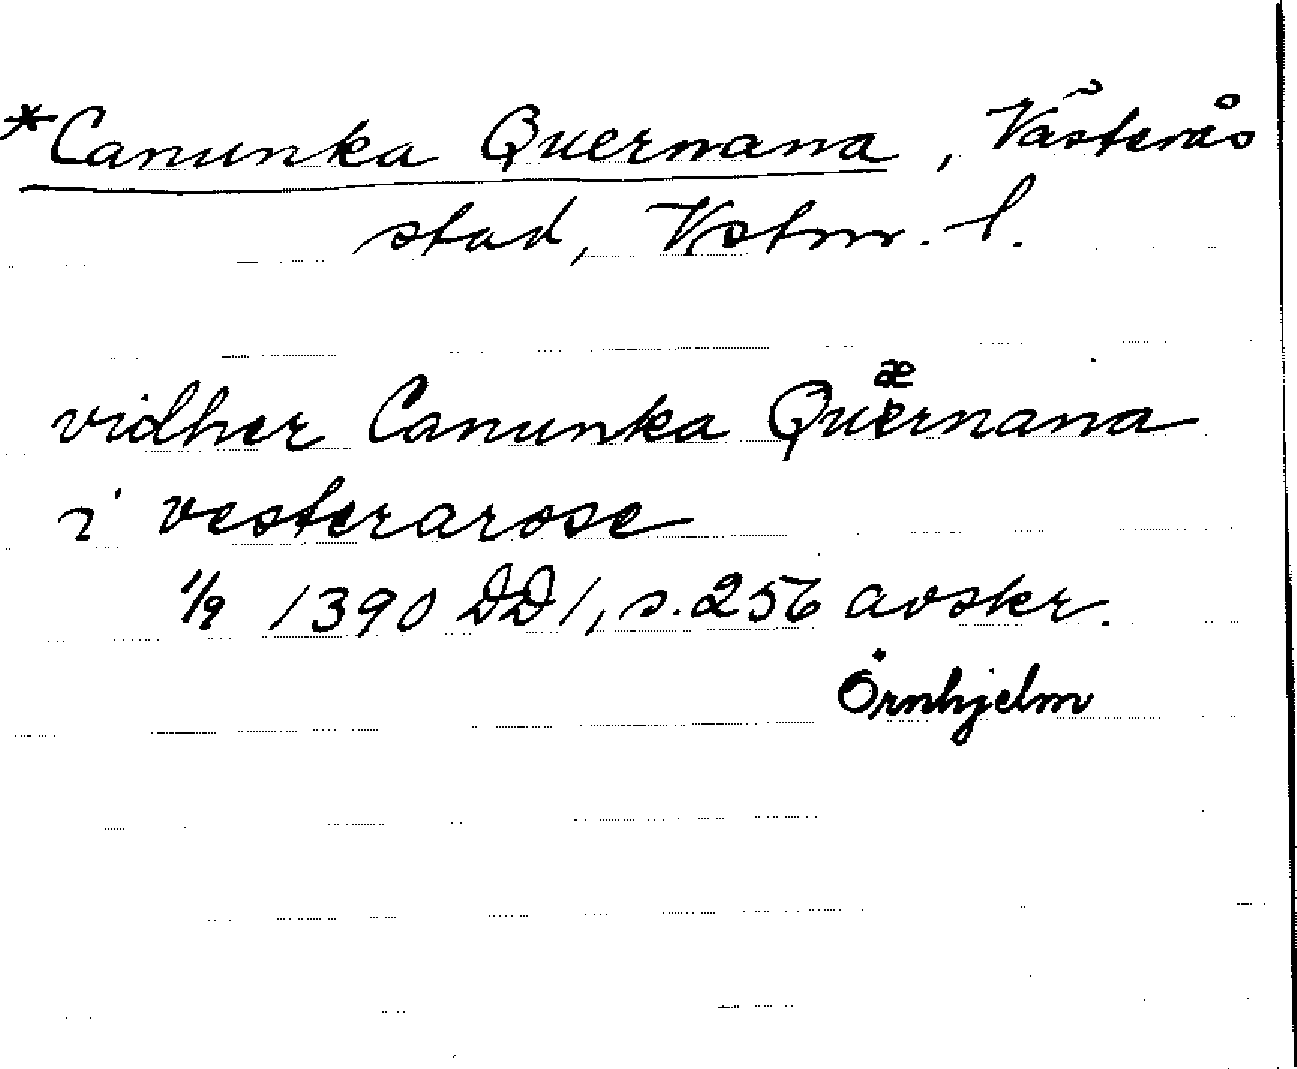 *Canunka Quernana, Västerås
stad, Vstm. l.
æ
vidher Canunka Quernana
i vesterarose
1/9 1390 DD 1, s. 256 avskr.
Örnhjelm